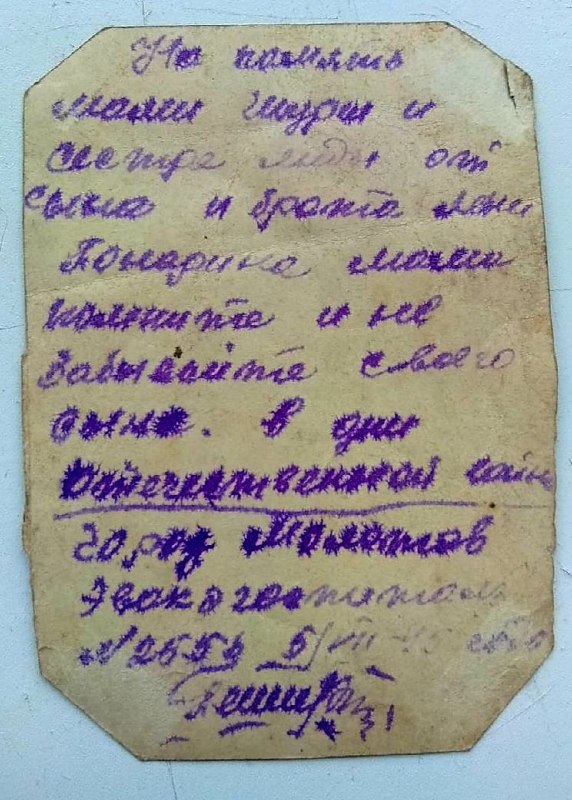 На память
мами Шуры и
сестре Люды от
сына и брата Лени
Понарина мама
помните и не
забывайте своего
сына. В дни
Отечественной войны
город Молотов
Эвакогоспиталь
№ 5/VII-45 года